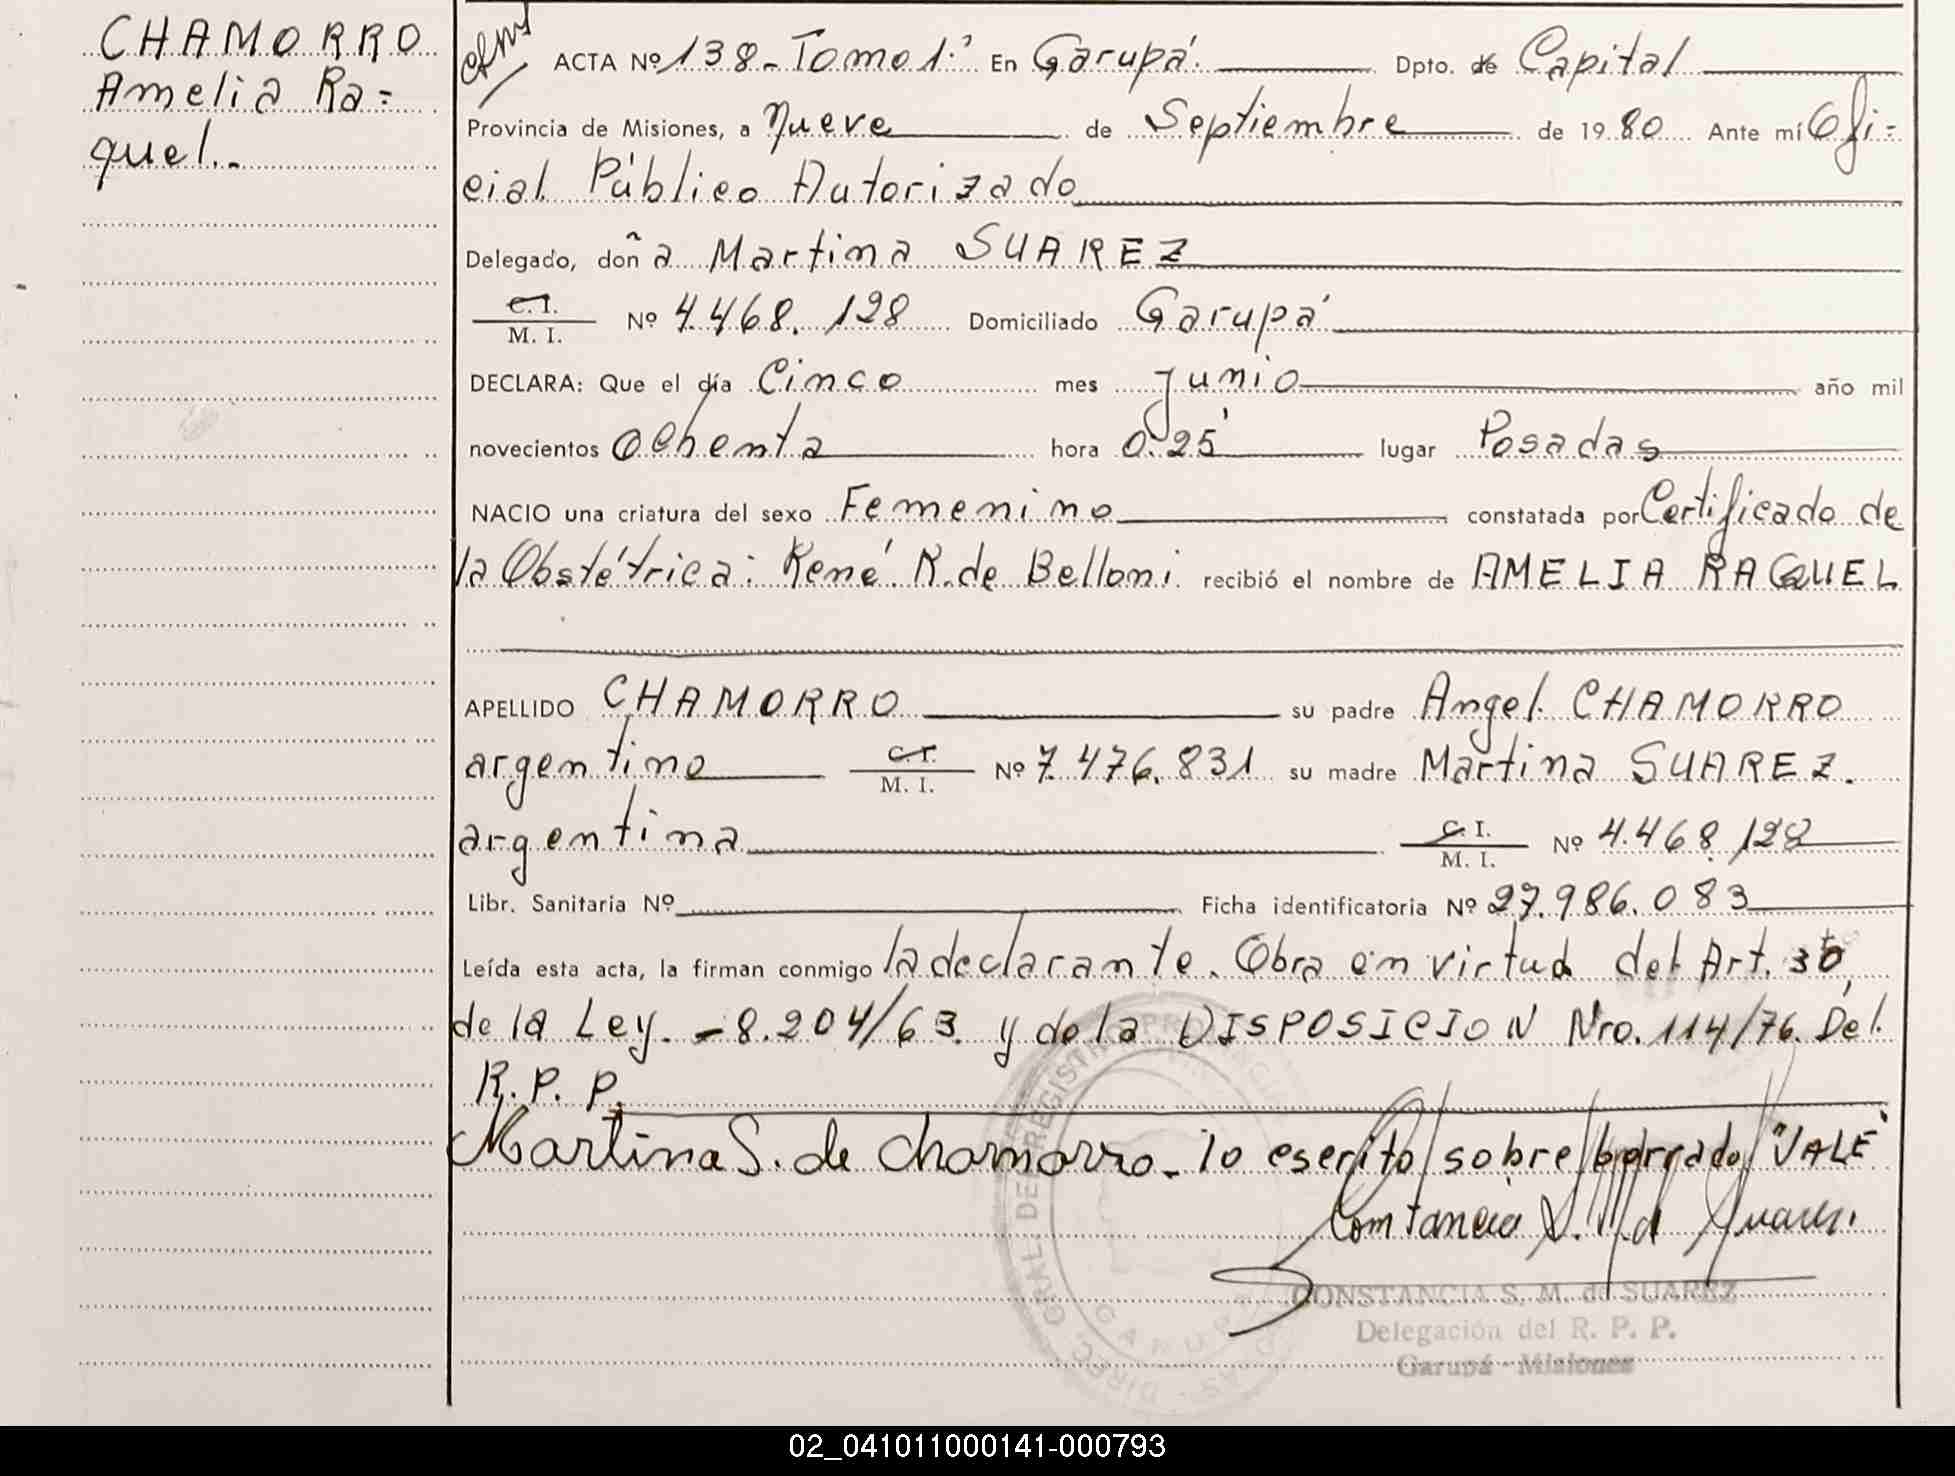 CHAMORRO
Amelia Ra=
quel.-
ACTA Nº 138-Tomo 1º En Garupá. Dpto. de Capital
Provincia de Misiones, a Nueve de Septiembre de 1980 Ante mí Ofi=
cial Público Autorizado
Delegado, doña Martina SUAREZ
C. I.
M. I. Nº 4.468.128 Domiciliado Garupá
DECLARA: Que el día Cinco mes junio año mil
novecientos Ochenta hora 0.25' lugar Posadas
NACIO una criatura del sexo Femenino constatada por Certificado de
la Obstétrica: René R. de Belloni recibió el nombre de AMELIA RAQUEL
APELLIDO CHAMORRO su padre Angel CHAMORRO
argentino C. I.
M. I. Nº 7.476.831 su madre Martina SUAREZ.
argentina C. I.
M. I. Nº 4.468.128
Libr. Sanitaria Nº Ficha identificatoria Nº 27.986.083
Leída esta acta, la firman conmigo la declarante. Obra en virtud del Art. 36,
de la Ley.-8.204/63. y de la DISPOSICION Nro. 114/76. Del.
R. P. P.
Martina S. de Chamorro - lo escrito sobre borrado "VALE"
Constancia S. M. d Suarez.
CONSTANCIA S. M. de SUAREZ
Delegación del R. P. P.
Garupá - Misiones
02_041011000141-000793